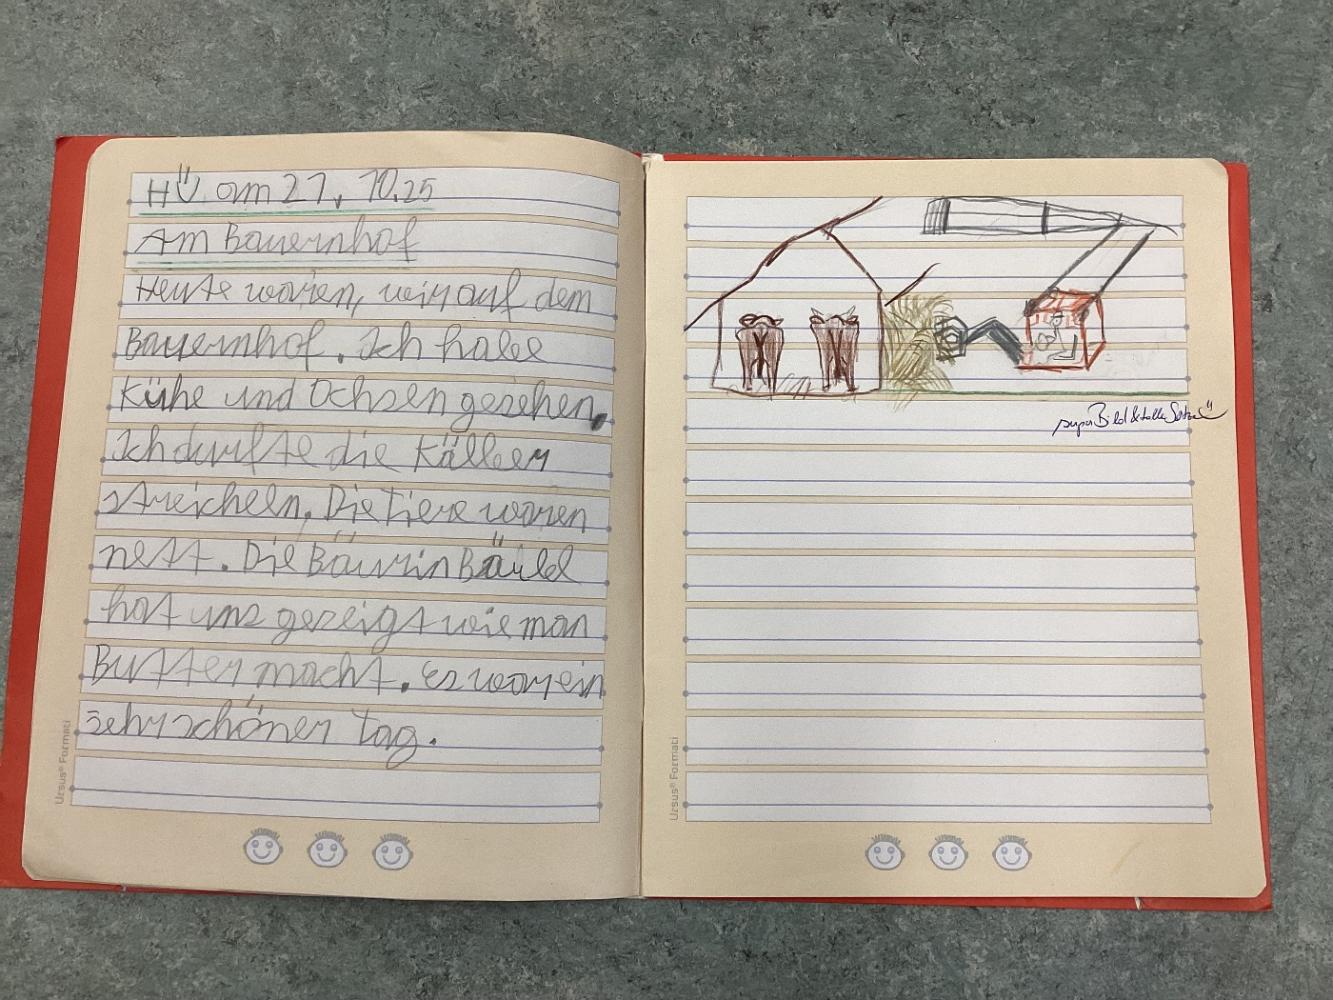 HÜ am 21. 10.25
Am Bauernhof
Heute waren, wir auf dem
Bauernhof. Ich habe
Kühe und Ochsen gesehen.
Ich durfte die Kälber
streicheln. Die Tiere waren
nett. Die Bäurin
hat uns gezeigt wie man
Butter macht. Es war ein
sehr schöner Tag.
Ursus® Formati
super Bild & tolle Sätze
Ursus® Formati